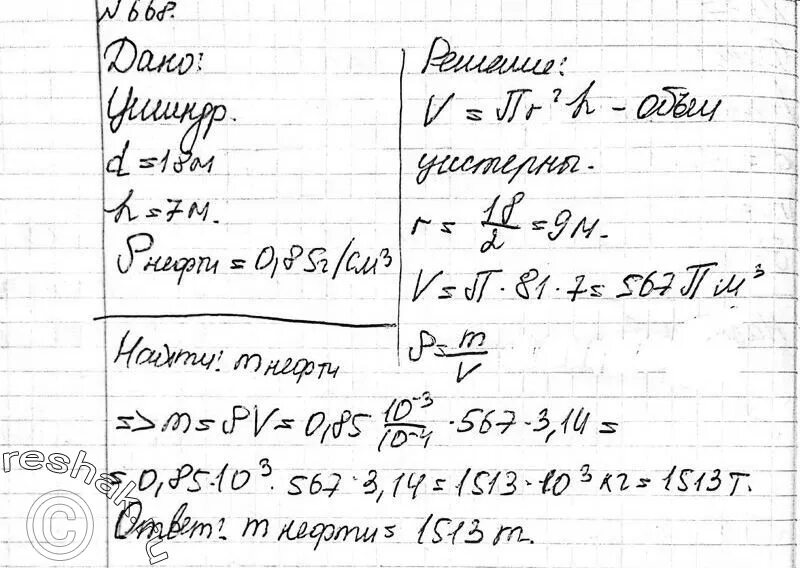 №668.
Дано:
Цилиндр.
d = 18м
h = 7м.
ρ нефти = 0,85г/см³
Найти: m нефти
Решение:
V = Пr²h - объем
цистерны.
r = 18/2 = 9м.
V = П · 81 · 7 = 567 П м³
ρ = m/V
=> m = ρV = 0,85 10⁻³/10⁻⁴ · 567 · 3,14 =
= 0,85·10³ · 567 · 3,14 = 1513 · 10³ кг = 1513 т.
Ответ: m нефти = 1513 т.
reshak.ru
©